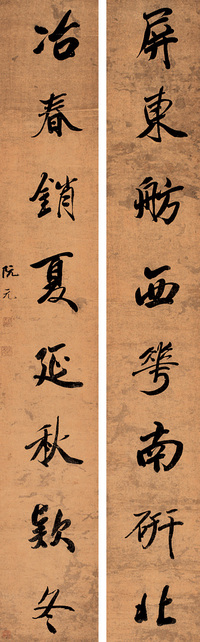 屏東舫西華南研北
冶春銷夏延秋款冬
阮元